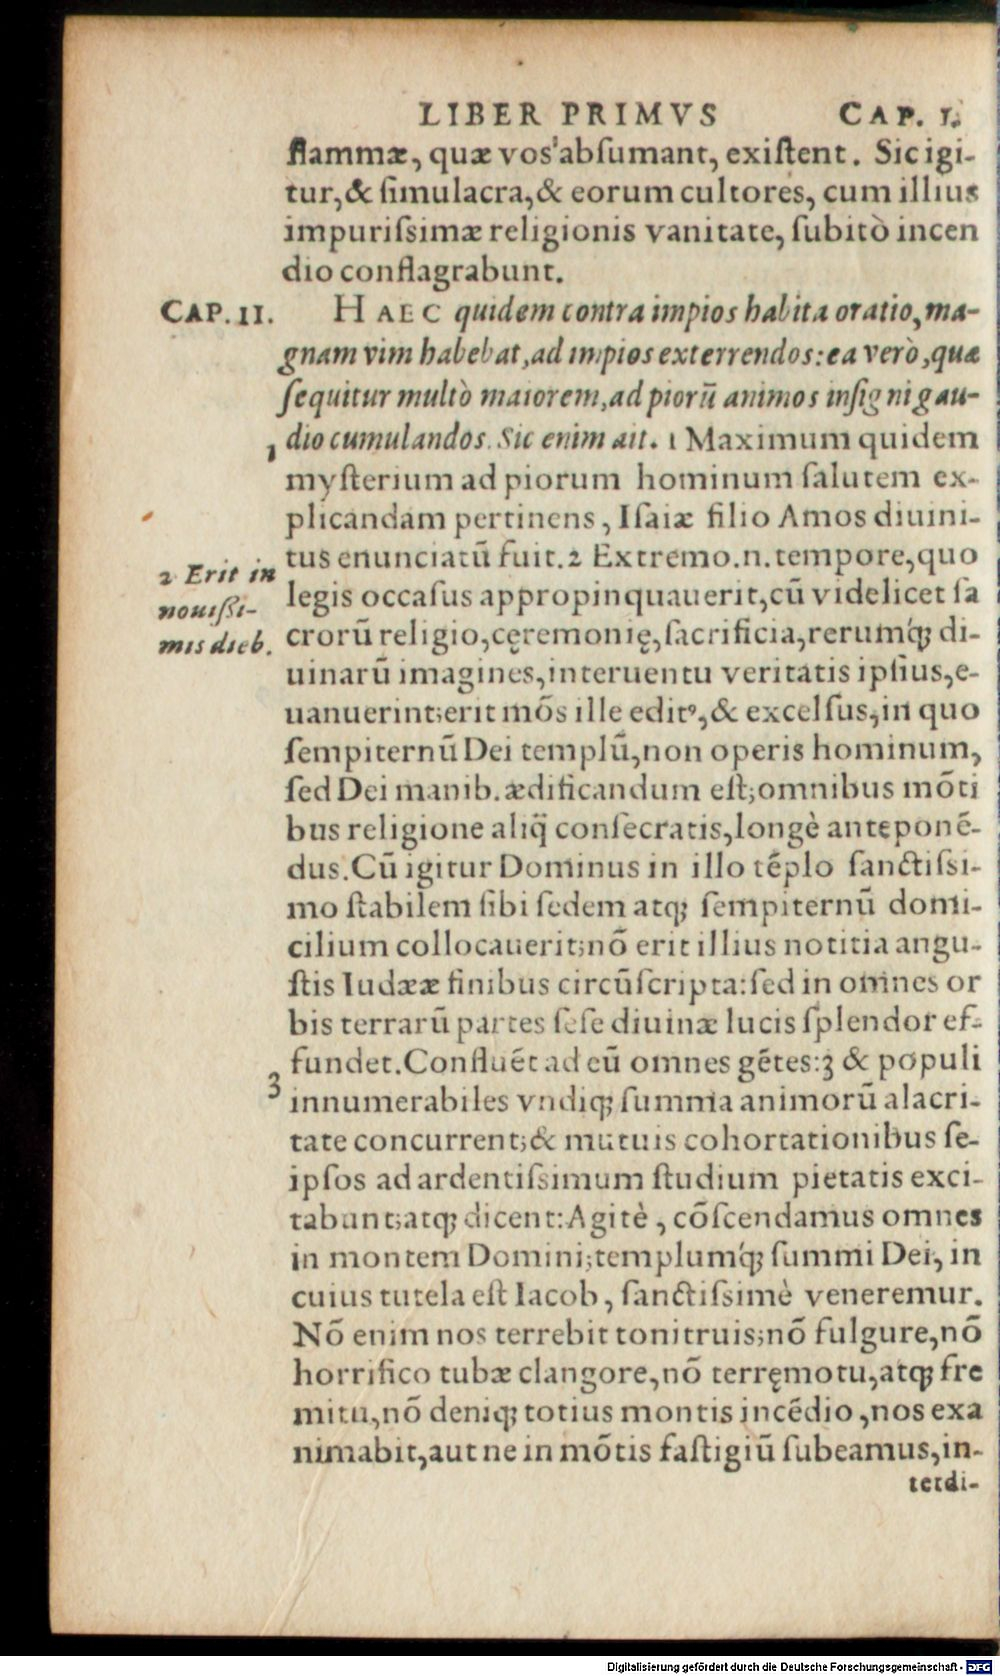 LIBER PRIMVS CAP. I.
flammæ, quæ vos abſumant, exiſtent. Sic igi-
tur, & ſimulacra, & eorum cultores, cum illius
impuriſsimæ religionis vanitate, ſubitò incen
dio conflagrabunt.
CAP. II. HAEC quidem contra impios habita oratio, ma-
gnam vim habebat, ad impios exterrendos: ea verò, quæ
ſequitur multò maiorem, ad piorũ animos inſigni gau-
1 dio cumulandos. Sic enim ait. 1 Maximum quidem
myſterium ad piorum hominum ſalutem ex-
plicandam pertinens, Iſaiæ filio Amos diuini-
tus enunciatũ fuit. 2 Extremo .n. tempore, quo
2 Erit in
nouißi-
mis dieb.
legis occaſus appropinquauerit, cũ videlicet ſa
crorũ religio, cęremonię, ſacrificia, rerumq́; di-
uinarũ imagines, interuentu veritatis ipſius, e-
uanuerint; erit mõs ille editꝰ, & excelſus, in quo
ſempiternũ Dei templũ, non operis hominum,
ſed Dei manib. ædificandum eſt; omnibus mõti
bus religione aliq̃ conſecratis, longè anteponẽ-
dus. Cũ igitur Dominus in illo tẽplo ſanctiſsi-
mo ſtabilem ſibi ſedem atq; ſempiternũ domi-
cilium collocauerit; nõ erit illius notitia angu-
ſtis Iudææ finibus circũſcripta: ſed in omnes or
bis terrarũ partes ſeſe diuinæ lucis ſplendor ef-
fundet. Confluẽt ad eũ omnes gẽtes: 3 & populi
3 innumerabiles vndiq; ſumma animorũ alacri-
tate concurrent; & mutuis cohortationibus ſe-
ipſos ad ardentiſsimum ſtudium pietatis exci-
tabunt; atq; dicent: Agitè, cõſcendamus omnes
in montem Domini; templumq́; ſummi Dei, in
cuius tutela eſt Iacob, ſanctiſsimè veneremur.
Nõ enim nos terrebit tonitruis; nõ fulgure, nõ
horrifico tubæ clangore, nõ terręmotu, atq; fre
mitu, nõ deniq; totius montis incẽdio, nos exa
nimabit, aut ne in mõtis faſtigiũ ſubeamus, in-
terdi-
Digitalisierung gefördert durch die Deutsche Forschungsgemeinschaft - DFG